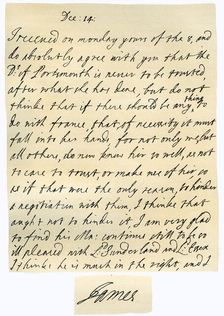 Dec: 14:
I receued on monday yours of the 8, and
do absolutly agree with you that the
D: of Portsmouth is never to be trusted,
after what she has done, but do not
thinke that if there should be any thing to
do with france, that of necessity it must
fall into her hands, for not only we, but
all others, do now know her so well, as not
to care to trust, or make use of her, so
as if that were the only reason, to hinder
a negotiation with them, I thinke that
aught not to hinder it, I am very glad
to find his Ma: continus still to be so
ill pleased with Ld Sunderland and Ld Essex
I thinke he is much in the right, and I
James